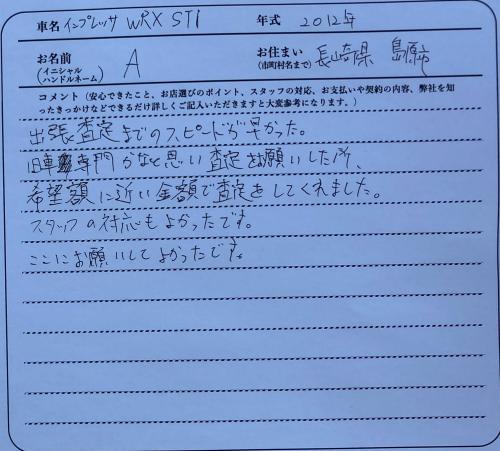 車名 インプレッサ WRX STI 年式 2012年
お名前 A お住まい 長崎県 島原市
(イニシャル ハンドルネーム) (市町村名まで)
コメント（安心できたこと、お店選びのポイント、スタッフの対応、お支払いや契約の内容、弊社を知
ったきっかけなどできるだけ詳しくご記入いただきますと大変参考になります。）
出張査定までのスピードが早かった。
旧車専門かなと思い査定お願いした所、
希望額に近い金額で査定をしてくれました。
スタッフの対応もよかったです。
ここにお願いしてよかったです。